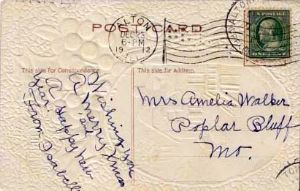 POST CARD
ALTON
DEC 23
6-PM
1912
ILL.
This side for Correspondence
This side for Address.
Wishing you
a Merry Xmas
and
a Happy New
Year.
From Isabell
Mrs Amelia Walker
Poplar Bluff
Mo.